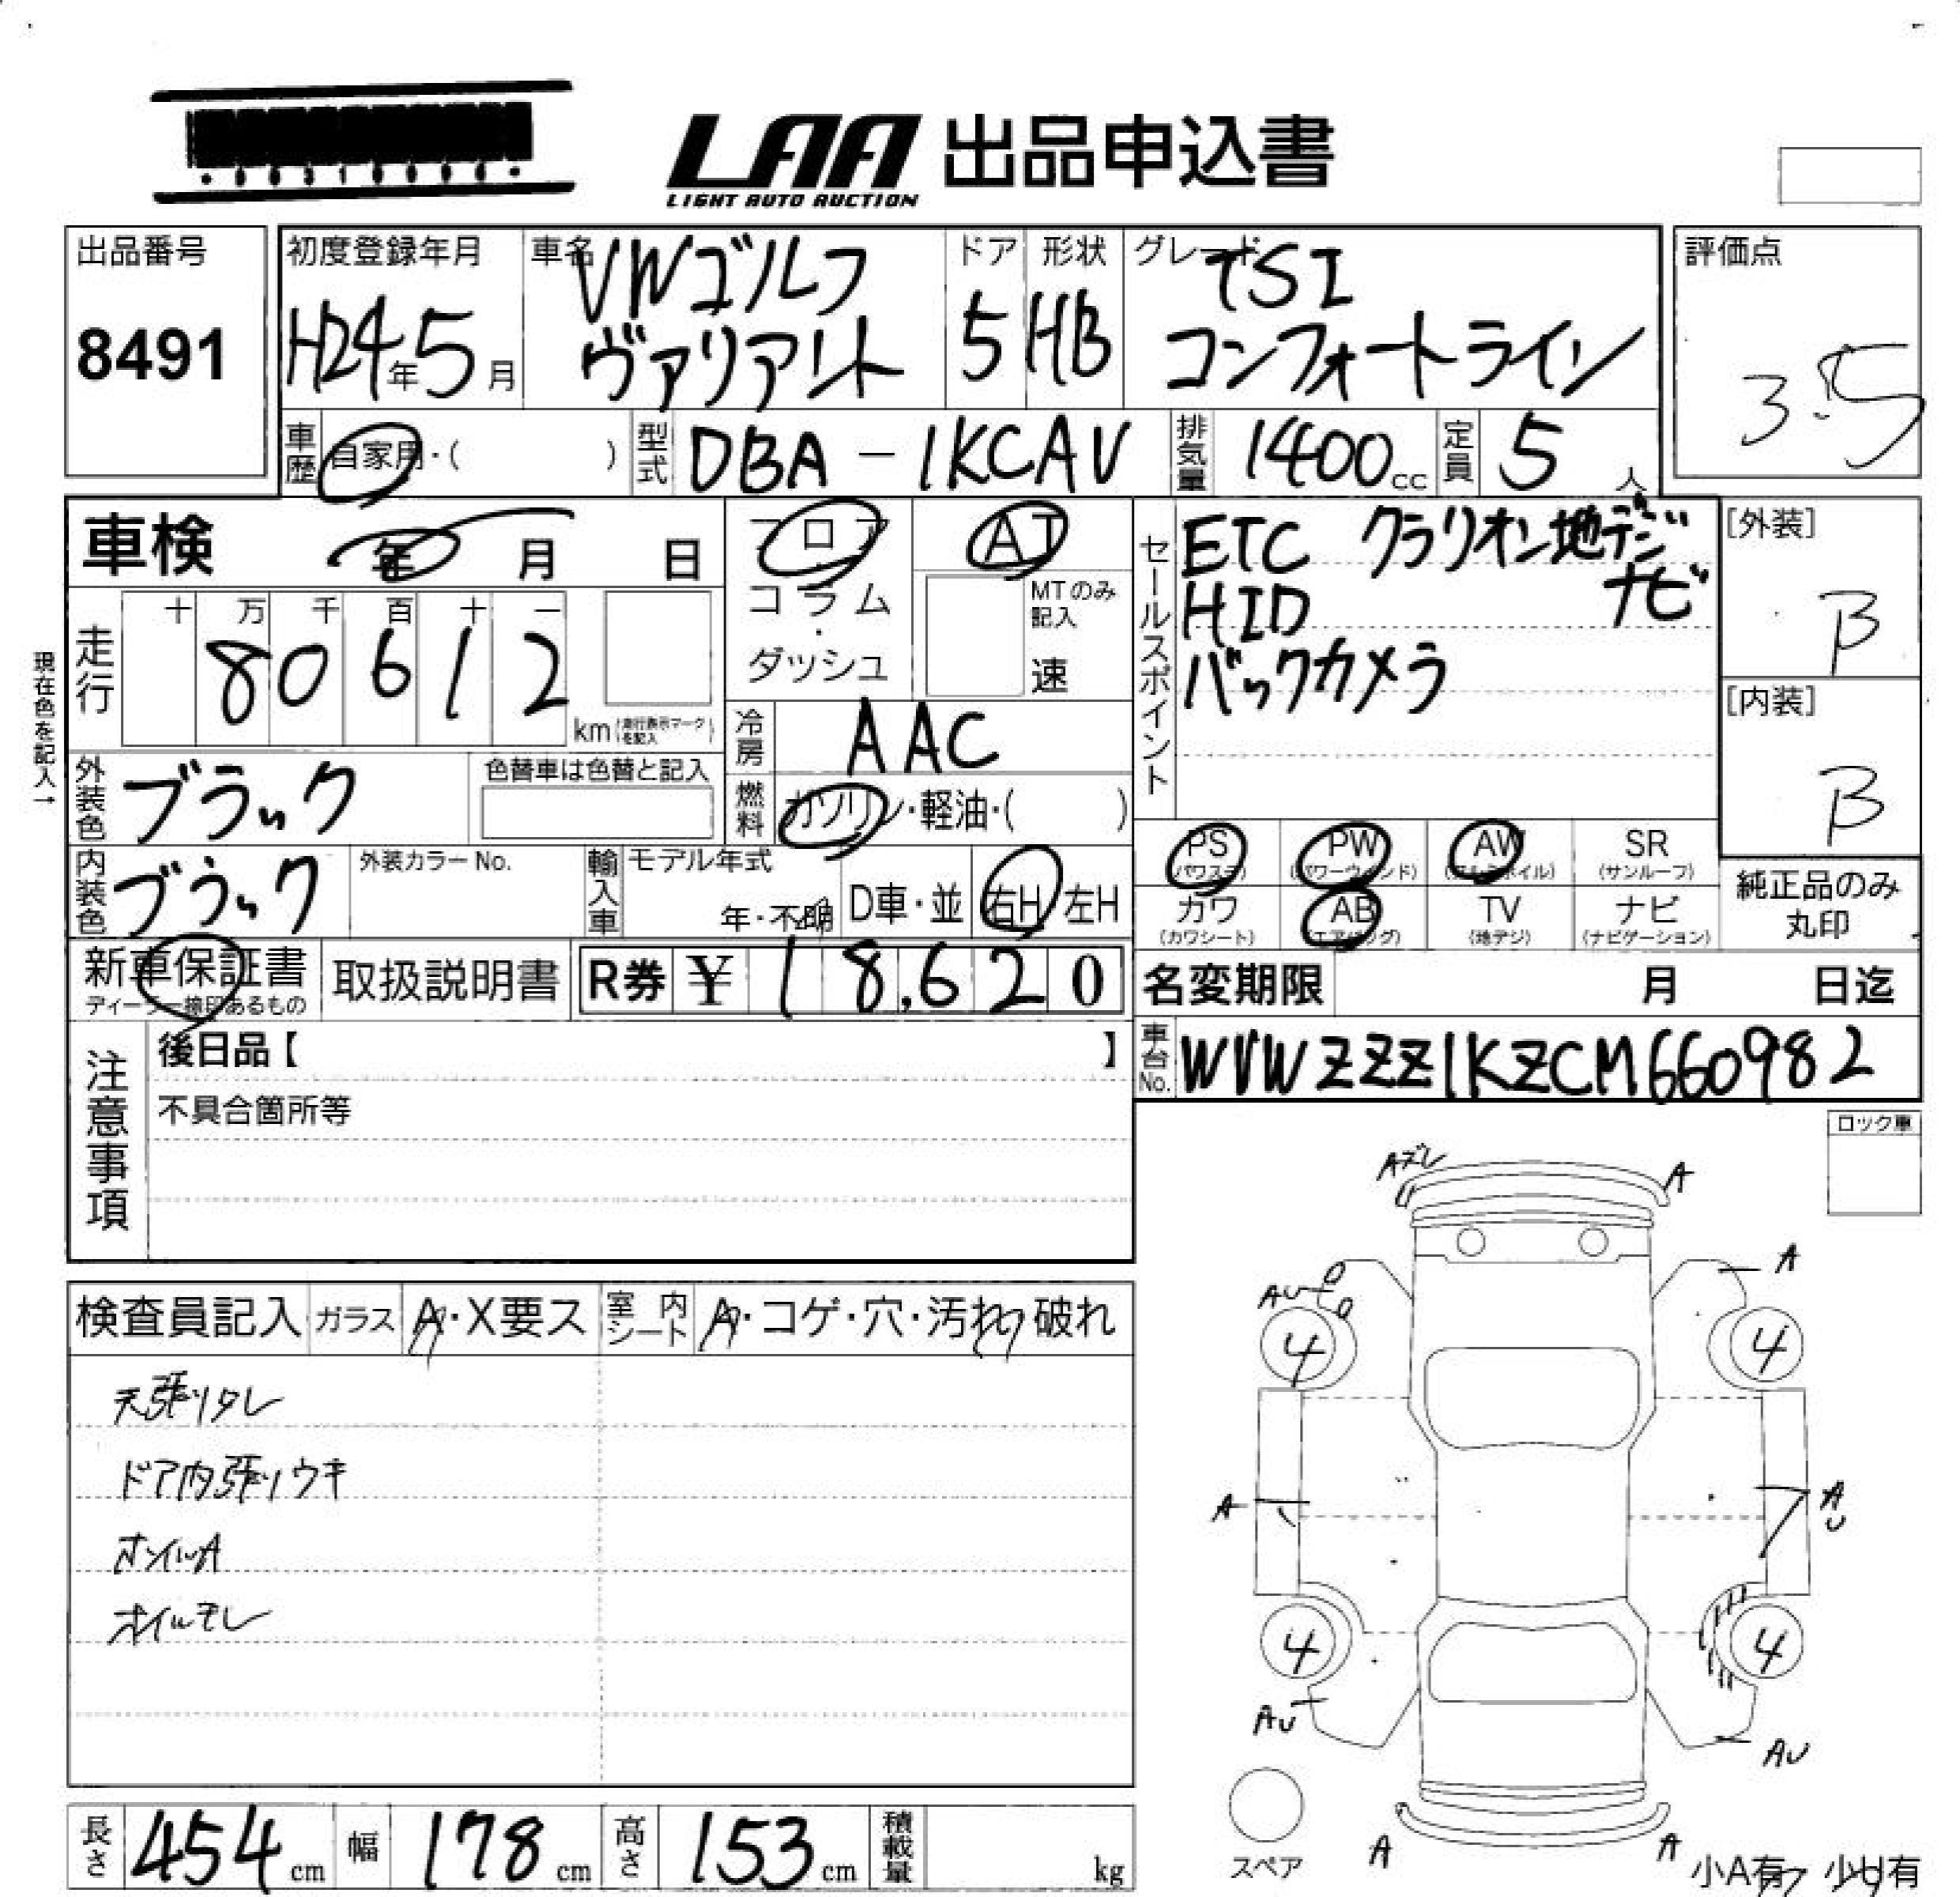 LAA 出品申込書
LIGHT AUTO AUCTION
出品番号
8491
初度登録年月
H24年5月
車名
VWゴルフ
ヴァリアント
ドア
5
形状
HB
グレード
TSI
コンフォートライン
評価点
3.5
車歴 自家用・( )
型式 DBA-1KCAV
排気量 1400cc
定員 5人
車検 年 月 日
フロア
コラム
・
ダッシュ
AT
MTのみ記入
速
セールスポイント
ETC クラリオン地デジ
HID ナビ
バックカメラ
[外装]
B
[内装]
B
現在色を記入→
走行
十 万 千 百 十 一
8 0 6 1 2
km (走行表示マークを記入)
冷房 AAC
外装色 ブラック
色替車は色替と記入
燃料 ガソリン・軽油・( )
内装色 ブラック
外装カラーNo.
輸入車
モデル年式
年・不明
D車・並
右H 左H
PS (パワステ)
PW (パワーウィンド)
AW (アルミホイル)
SR (サンルーフ)
カワ (カワシート)
AB (エアバッグ)
TV (地デジ)
ナビ (ナビゲーション)
純正品のみ
丸印
新車保証書
ディーラー捺印あるもの
取扱説明書
R券 ¥ 18,620
名変期限 月 日迄
車台No. WVWZZZ1KZCM660982
注意事項
後日品【 】
不具合箇所等
ロック車
検査員記入
ガラス A・X要ス
室内シート A・コゲ・穴・汚れ・破れ
天張りタレ
ドア内張りウキ
ホイルA
オイルモレ
Aズレ
A
A
AU
4
4
A
A
U
4
4
AU
AU
スペア
A
A
小A有 少U有
長さ 454cm
幅 178cm
高さ 153cm
積載量 kg